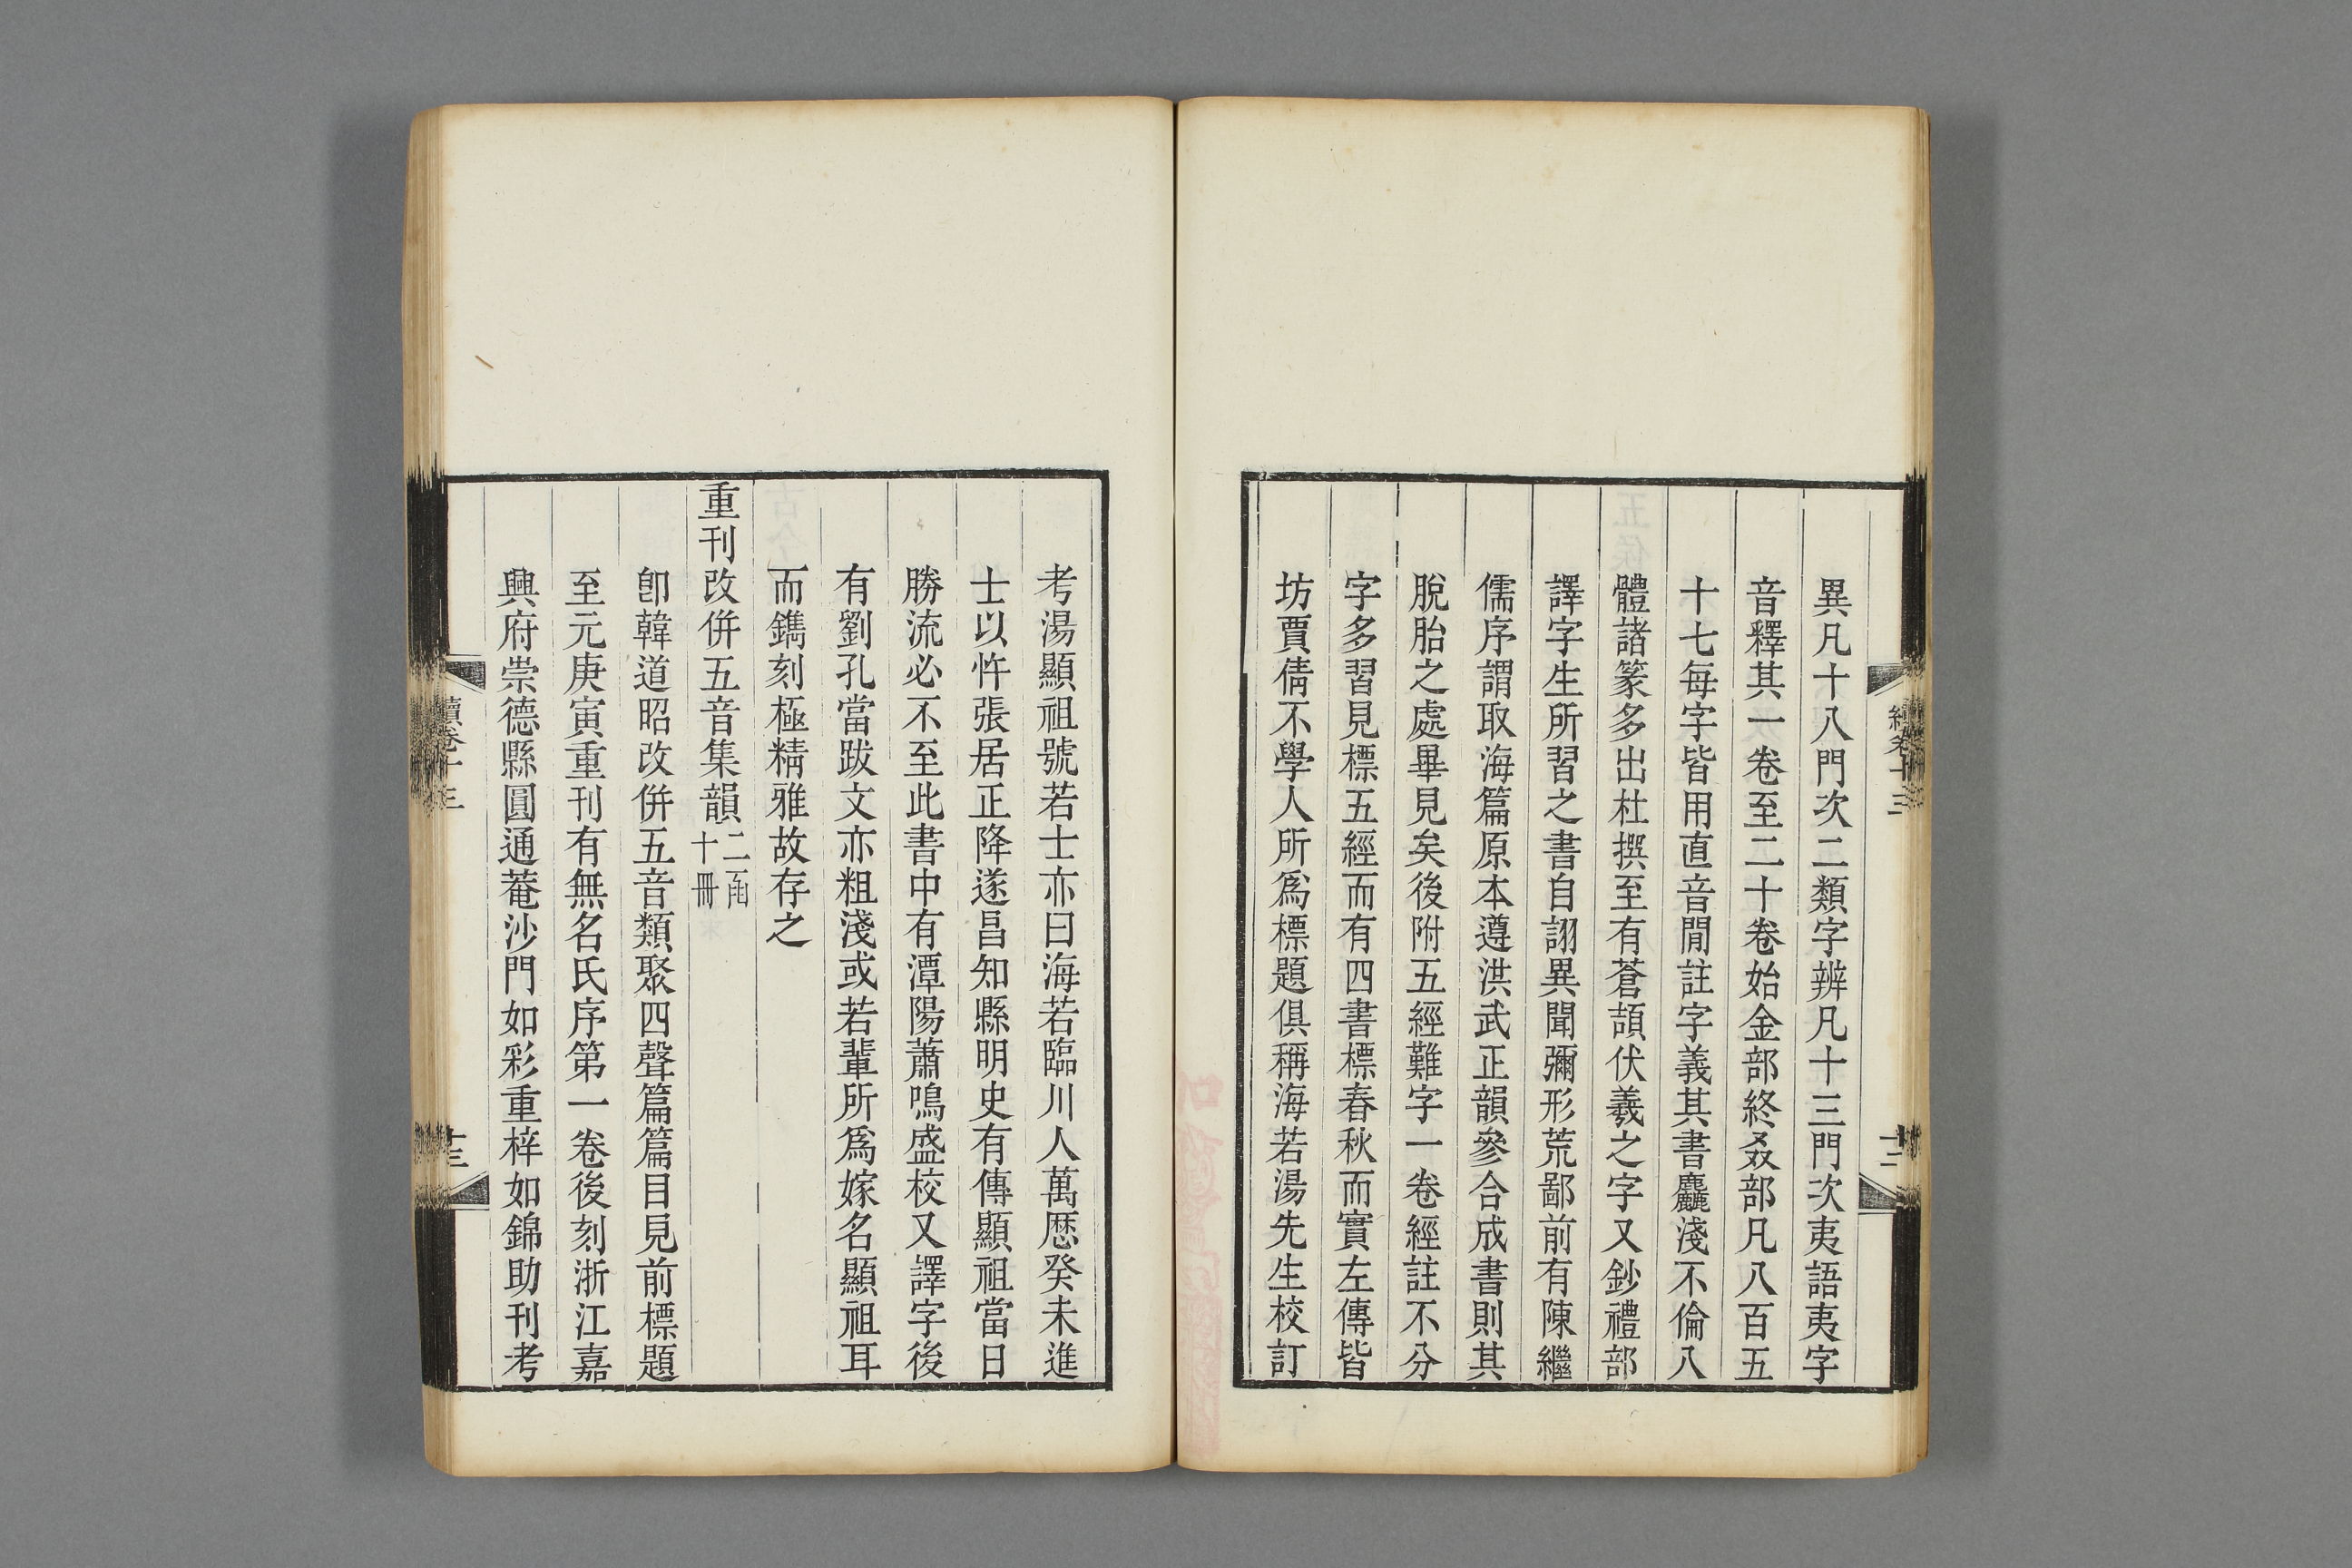 異凡十八門次二類字辨凡十三門次夷語夷字
音釋其一卷至二十卷始金部終叒部凡八百五
十七每字皆用直音閒註字義其書麤淺不倫八
體諸篆多出杜撰至有蒼頡伏羲之字又鈔禮部
譯字生所習之書自詡異聞彌形荒鄙前有陳繼
儒序謂取海篇原本遵洪武正韻參合成書則其
脫胎之處畢見矣後附五經難字一卷經註不分
字多習見標五經而有四書標春秋而實左傳皆
坊賈倩不學人所爲標題俱稱海若湯先生校訂
考湯顯祖號若士亦曰海若臨川人萬歷癸未進
士以忤張居正降遂昌知縣明史有傳顯祖當日
勝流必不至此書中有潭陽蕭鳴盛校又譯字後
有劉孔當跋文亦粗淺或若輩所爲嫁名顯祖耳
而鐫刻極精雅故存之
重刊改併五音集韻二函十冊
卽韓道昭改併五音類聚四聲篇篇目見前標題
至元庚寅重刊有無名氏序第一卷後刻浙江嘉
興府崇德縣圓通菴沙門如彩重梓如錦助刊考
續卷十三
十三